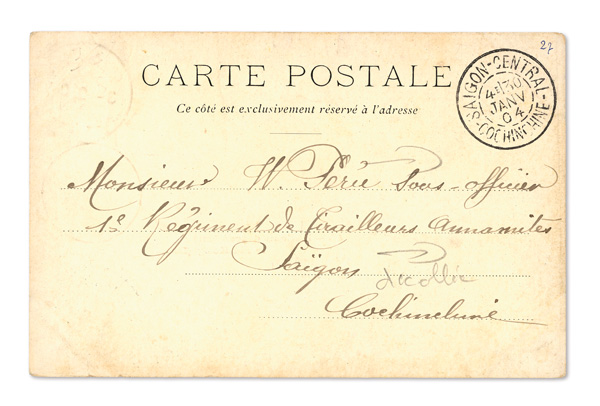 27
CARTE POSTALE
Ce côté est exclusivement réservé à l'adresse
SAIGON-CENTRAL
30
JANV
04
COCHINCHINE
Monsieur W. Sous-officier
1e Régiment de Tirailleurs Annamites
Saïgon
décollée
Cochinchine